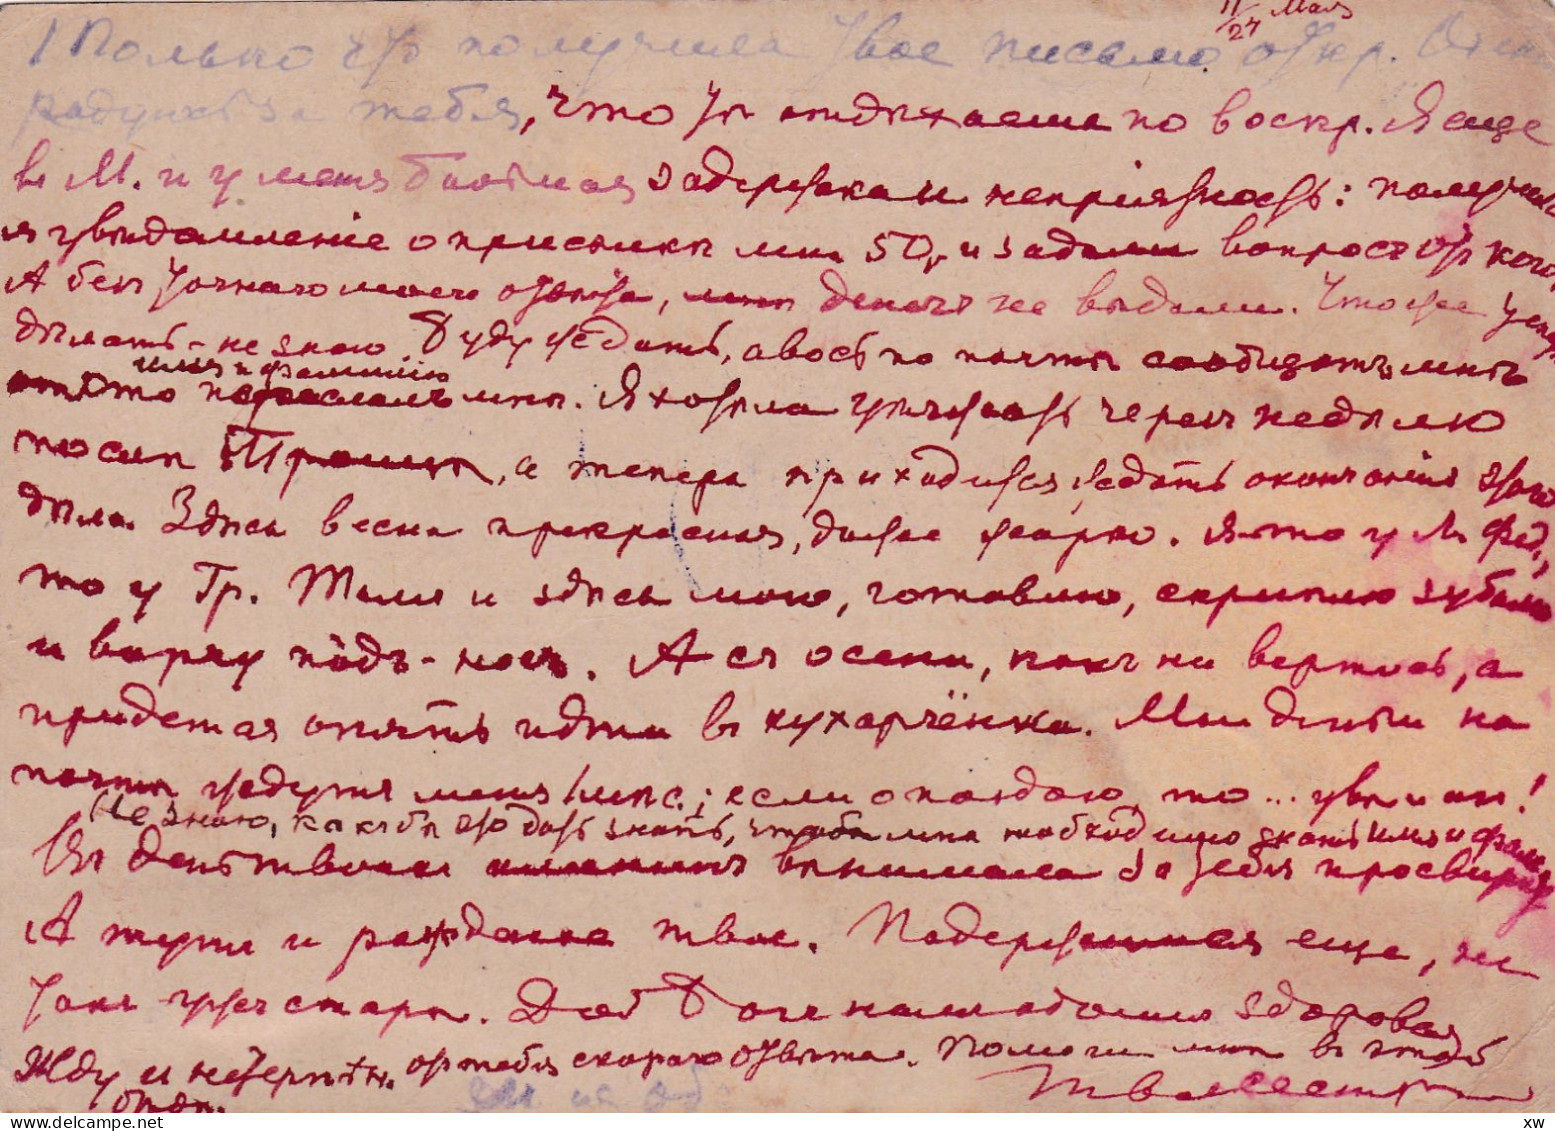 11/24 Мая
Только что получила твое письмо откр. Очень
радуюсь за тебя, что ты отдыхаешь по воскр. Я еще
в М. и у меня большая задержка и неприятность: получила
я увѣдомленіе о присылкѣ мнѣ 50 р. и задали вопросъ отъ кого,
А безъ точнаго моего отвѣта, мнѣ денегъ не выдали. Что же теперь
дѣлать - не знаю. Буду ждать, авось по почтѣ сообщатъ мнѣ
имя и фамилію
кто мнѣ. Я хотѣла уѣзжать черезъ недѣлю
послѣ Троицы, а теперь приходится ждать окончанія этого
дѣла. Здѣсь весна прекрасная, даже жарко. Я то у М. Фед.,
то у Гр. Тамъ и здѣсь мою, готовлю, скриплю зубами
и ворчу подъ-носъ. А съ осени, какъ ни вертись, а
придется опять идти в кухарчёнки. Мои деньги на
почтѣ ждутъ меня ; если опоздаю, то... увы и ах!
(Не знаю, какъ бы это дать знать, чтобы мнѣ необходимо знать имя и фамил.
Въ день твоего вынимала за тебя просвирку
А тутъ и рожденье твое. Подержимся еще, не
такъ ужъ стары. Дай Боже нам обоимъ здоровья
Жду и нетерпѣл. отъ тебя скораго отвѣта. Помоги мнѣ в этой
Твоя сестра